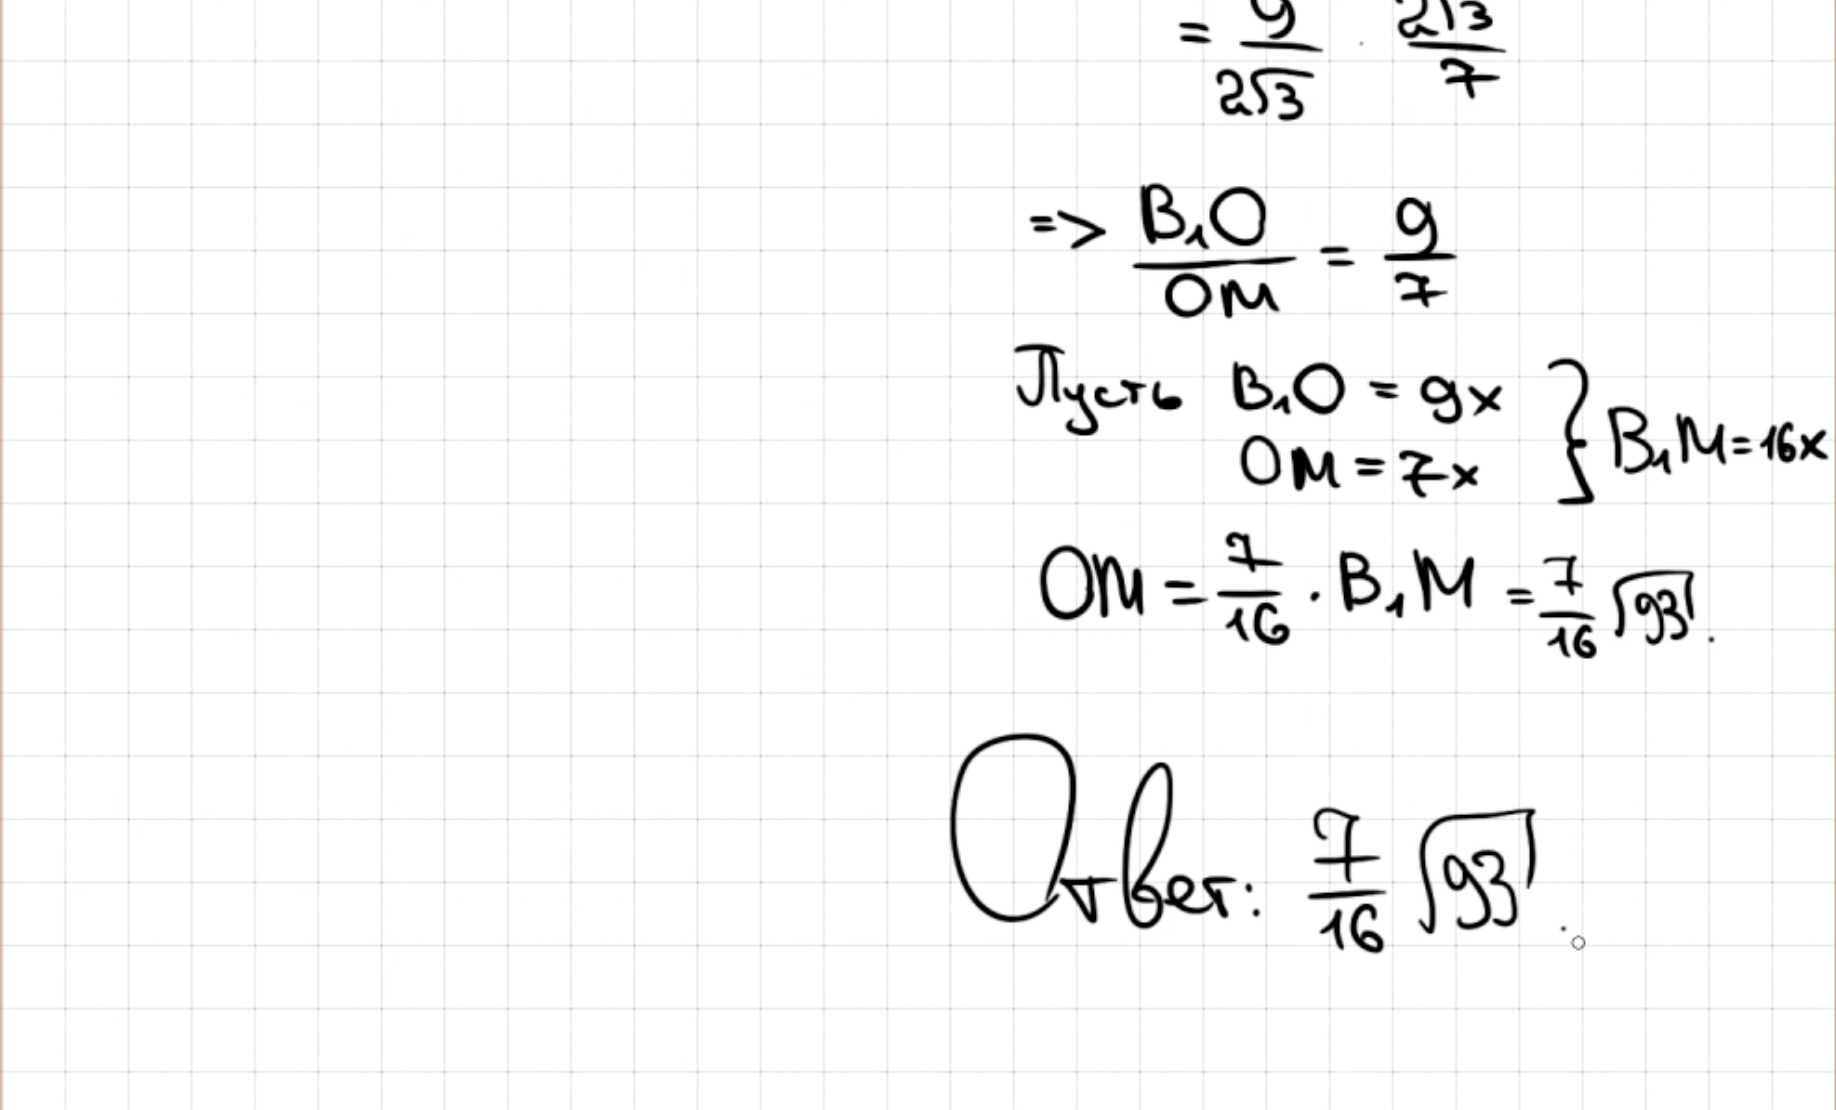 = 9/2√3 · 2√3/7
=> B₁O/OM = 9/7
Пусть B₁O = 9x
OM = 7x } B₁M = 16x
OM = 7/16 · B₁M = 7/16 √93.
Ответ: 7/16 √93.